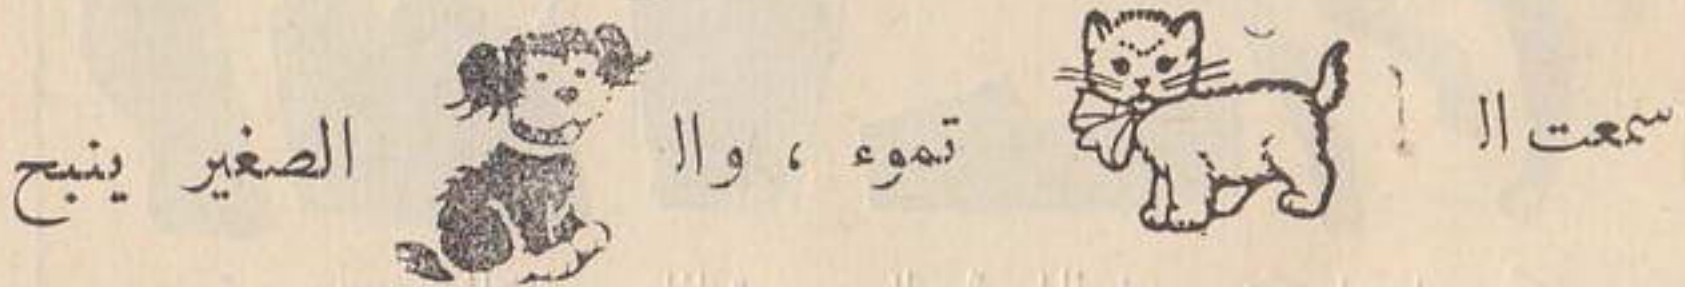 سمعت الـ تموء ، والـ الصغير ينبح